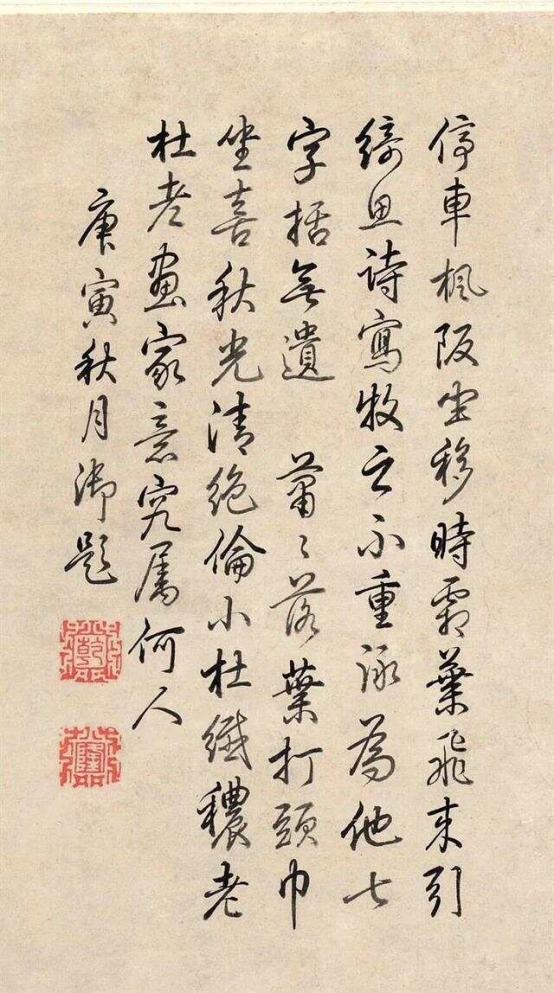 停車楓阪坐移時霜葉飛來引
綺思詩寫牧之不重詠為他七
字括無遺 蕭〻落葉打頭巾
坐喜秋光清絕倫小杜纖穠老
杜老畫家意究屬何人
庚寅秋月御題
乾
隆